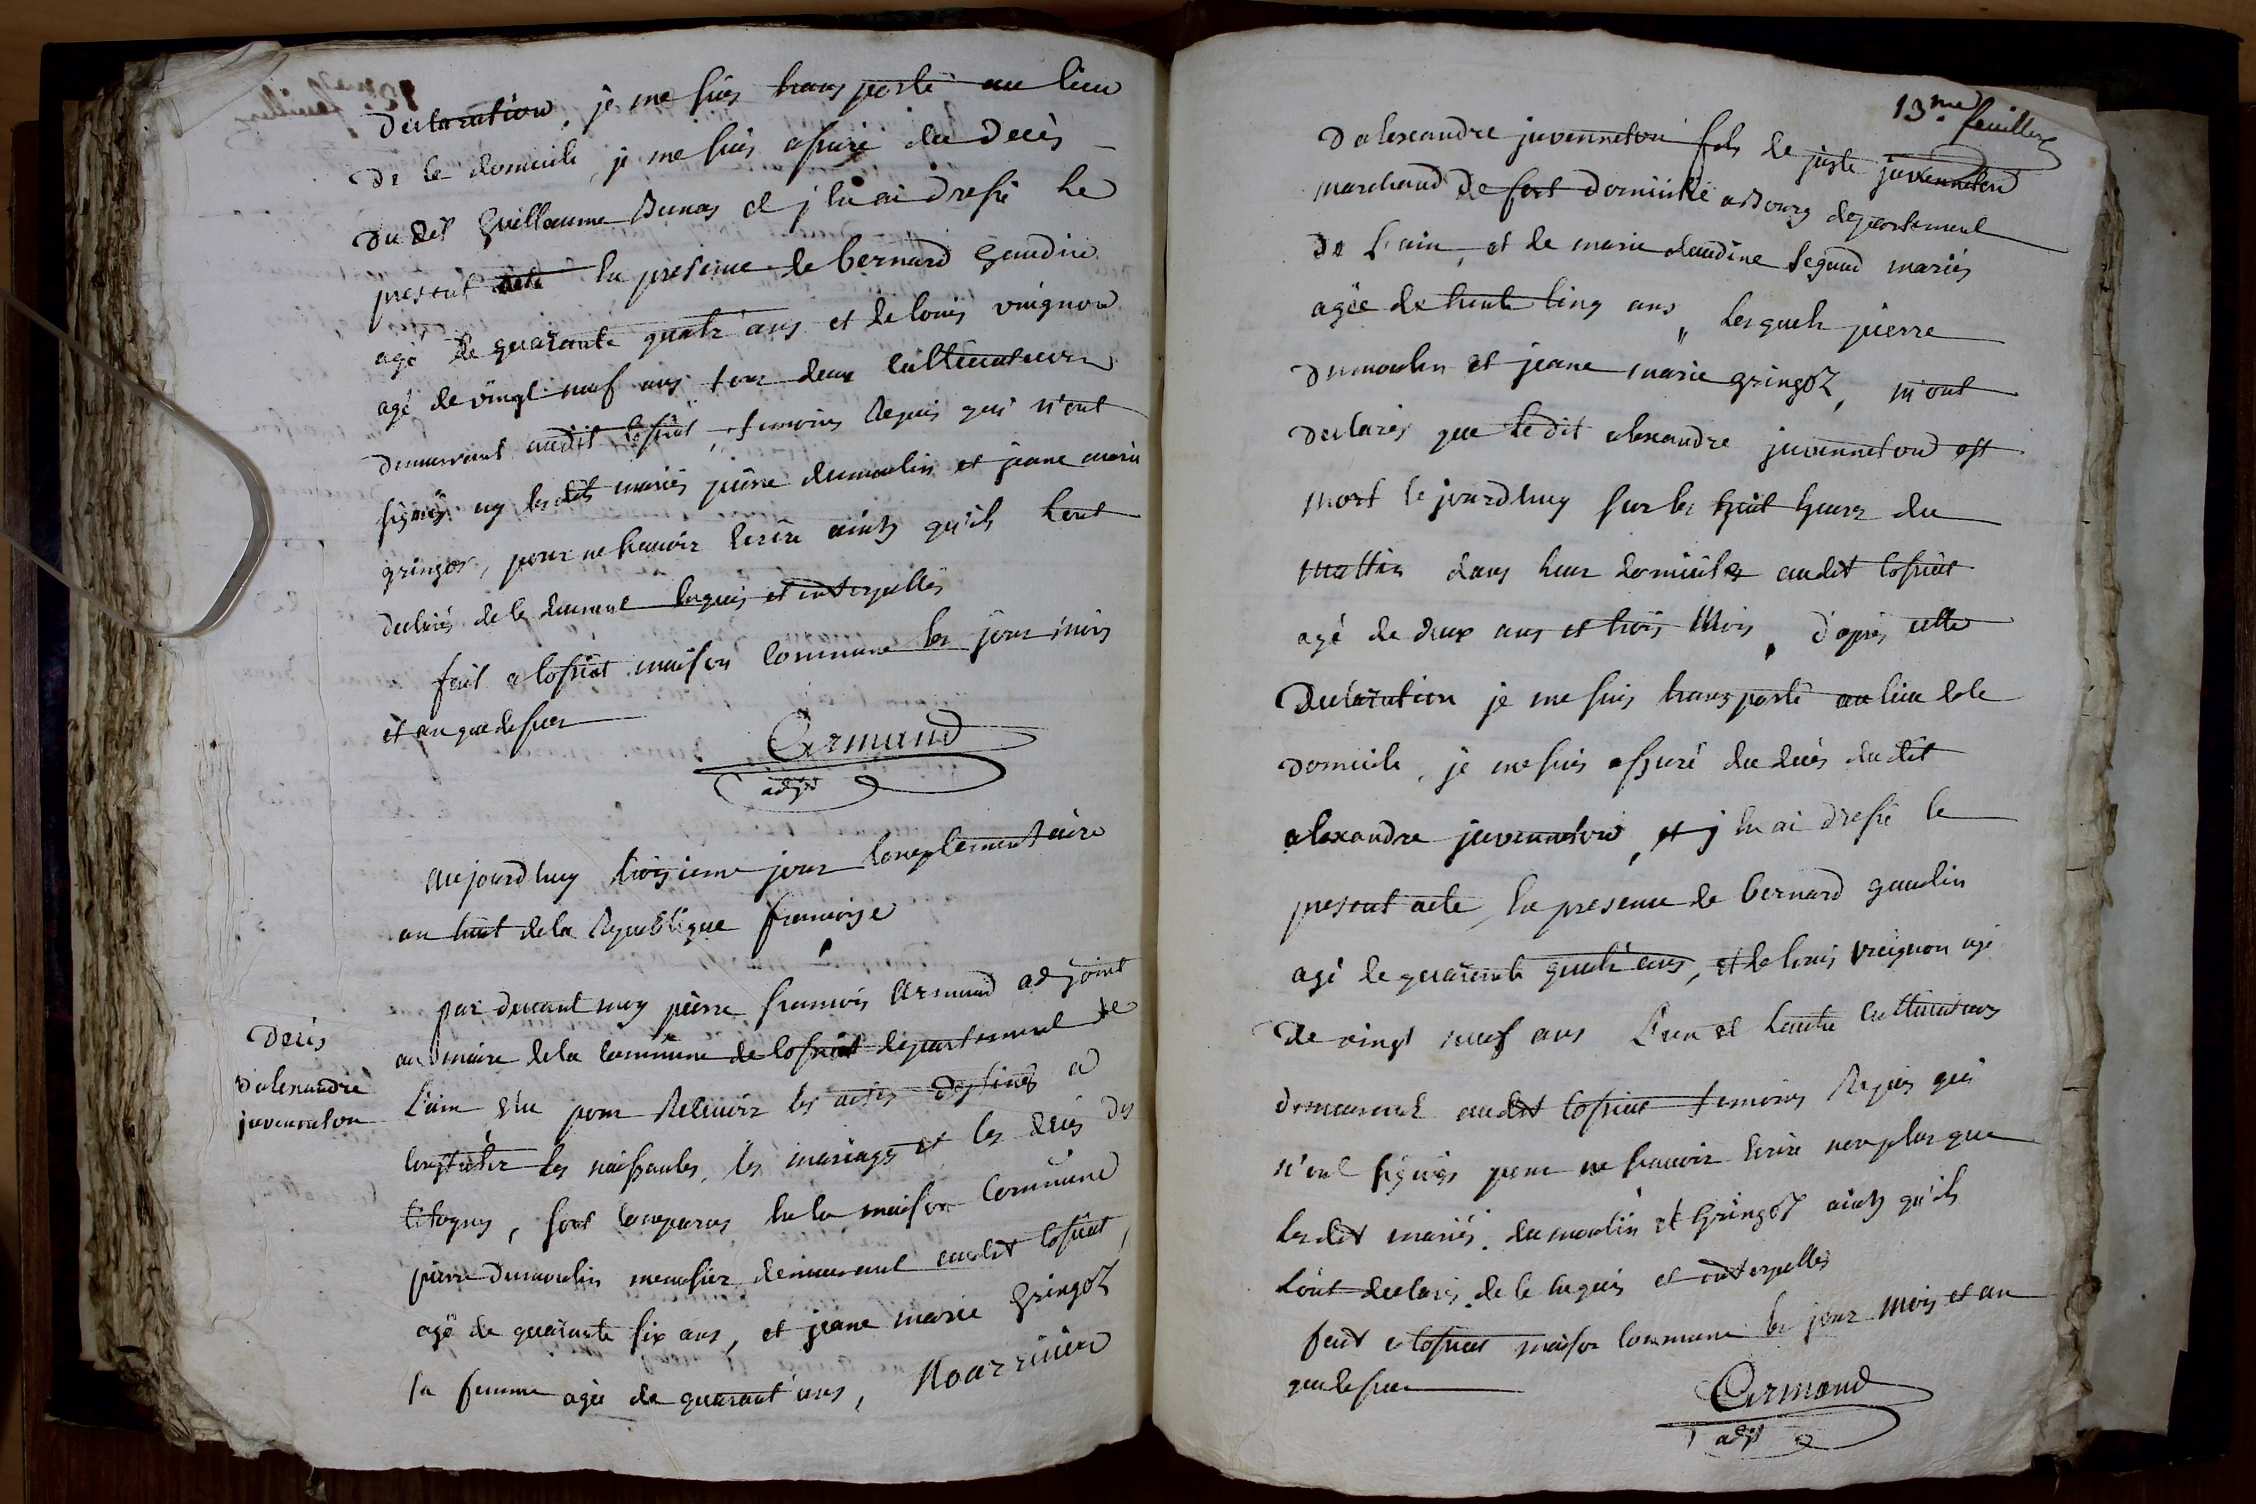 declaration, je me suis transporté au lieu
de le domicile, je me suis assuré du decès
du dit Guillaume Dunas et j'en ai dressé le
present acte en presence de bernard gaudin
agé de quarante quatr'ans et de louis vuignon
agé de vingt neuf ans tous deux cultivateurs
demeurant audit Cosiat, temoins requis qui n'ont
signés ny lesdits mariés pierre dumoulin et jeane marie
gringoz, pour ne scavoir ecrire ainsy qu'ils l'ont
declarés de le enquis et interpellés
fait a Cosiat maison commune les jour mois
et an que dessus
Armand
adjt
aujourd'huy troisieme jour complementaire
an huit de la Republique francoise
par devant moy pierre francois Armand adjoint
au maire de la commune de Cosiat departement de
l'ain elu pour recevoir les actes destinés a
constater les naissances, les mariages et les decès des
citoyens, sont comparus en la maison commune
pierre dumoulin menusier demeurant audit Cosiat,
agé de quarante six ans, et jeane marie gringoz
sa femme agée de quarant'ans, Nourriciere
Decès
d'alexandre
juvenneton
13.me feuillet
d'alexandre juvenneton fils de juste juvenneton
marchand de fert domicilié a Bourg departement
de l'ain, et de marie claudine segaud mariés
agée de trente cinq ans, lesquels pierre
dumoulin et jeane marie gringoz, m'ont
declarés que le dit alexandre juvenneton est
mort le jourd'huy sur les huit heures du
mattin dans leur domicile audit Cosiat
agé de deux ans et trois mois, d'apres cette
declaration je me suis transporté au lieu de le
domicile, je me suis assuré du decès du dit
alexandre juvenneton, et j'en ai dressé le
present acte, en presence de bernard gaudin
agé de quarante quatr'ans, et de louis vuignon agé
de vingt neuf ans l'un et l'autre cultivateurs
demeurant audit Cosiat temoins requis qui
n'ont signés pour ne scavoir ecrire non plus que
lesdit mariés dumoulin et gringoz ainsy qu'ils
l'ont declarés de le enquis et interpellés
fait a Cosiat maison commune les jour mois et an
que dessus
Armand
adjt